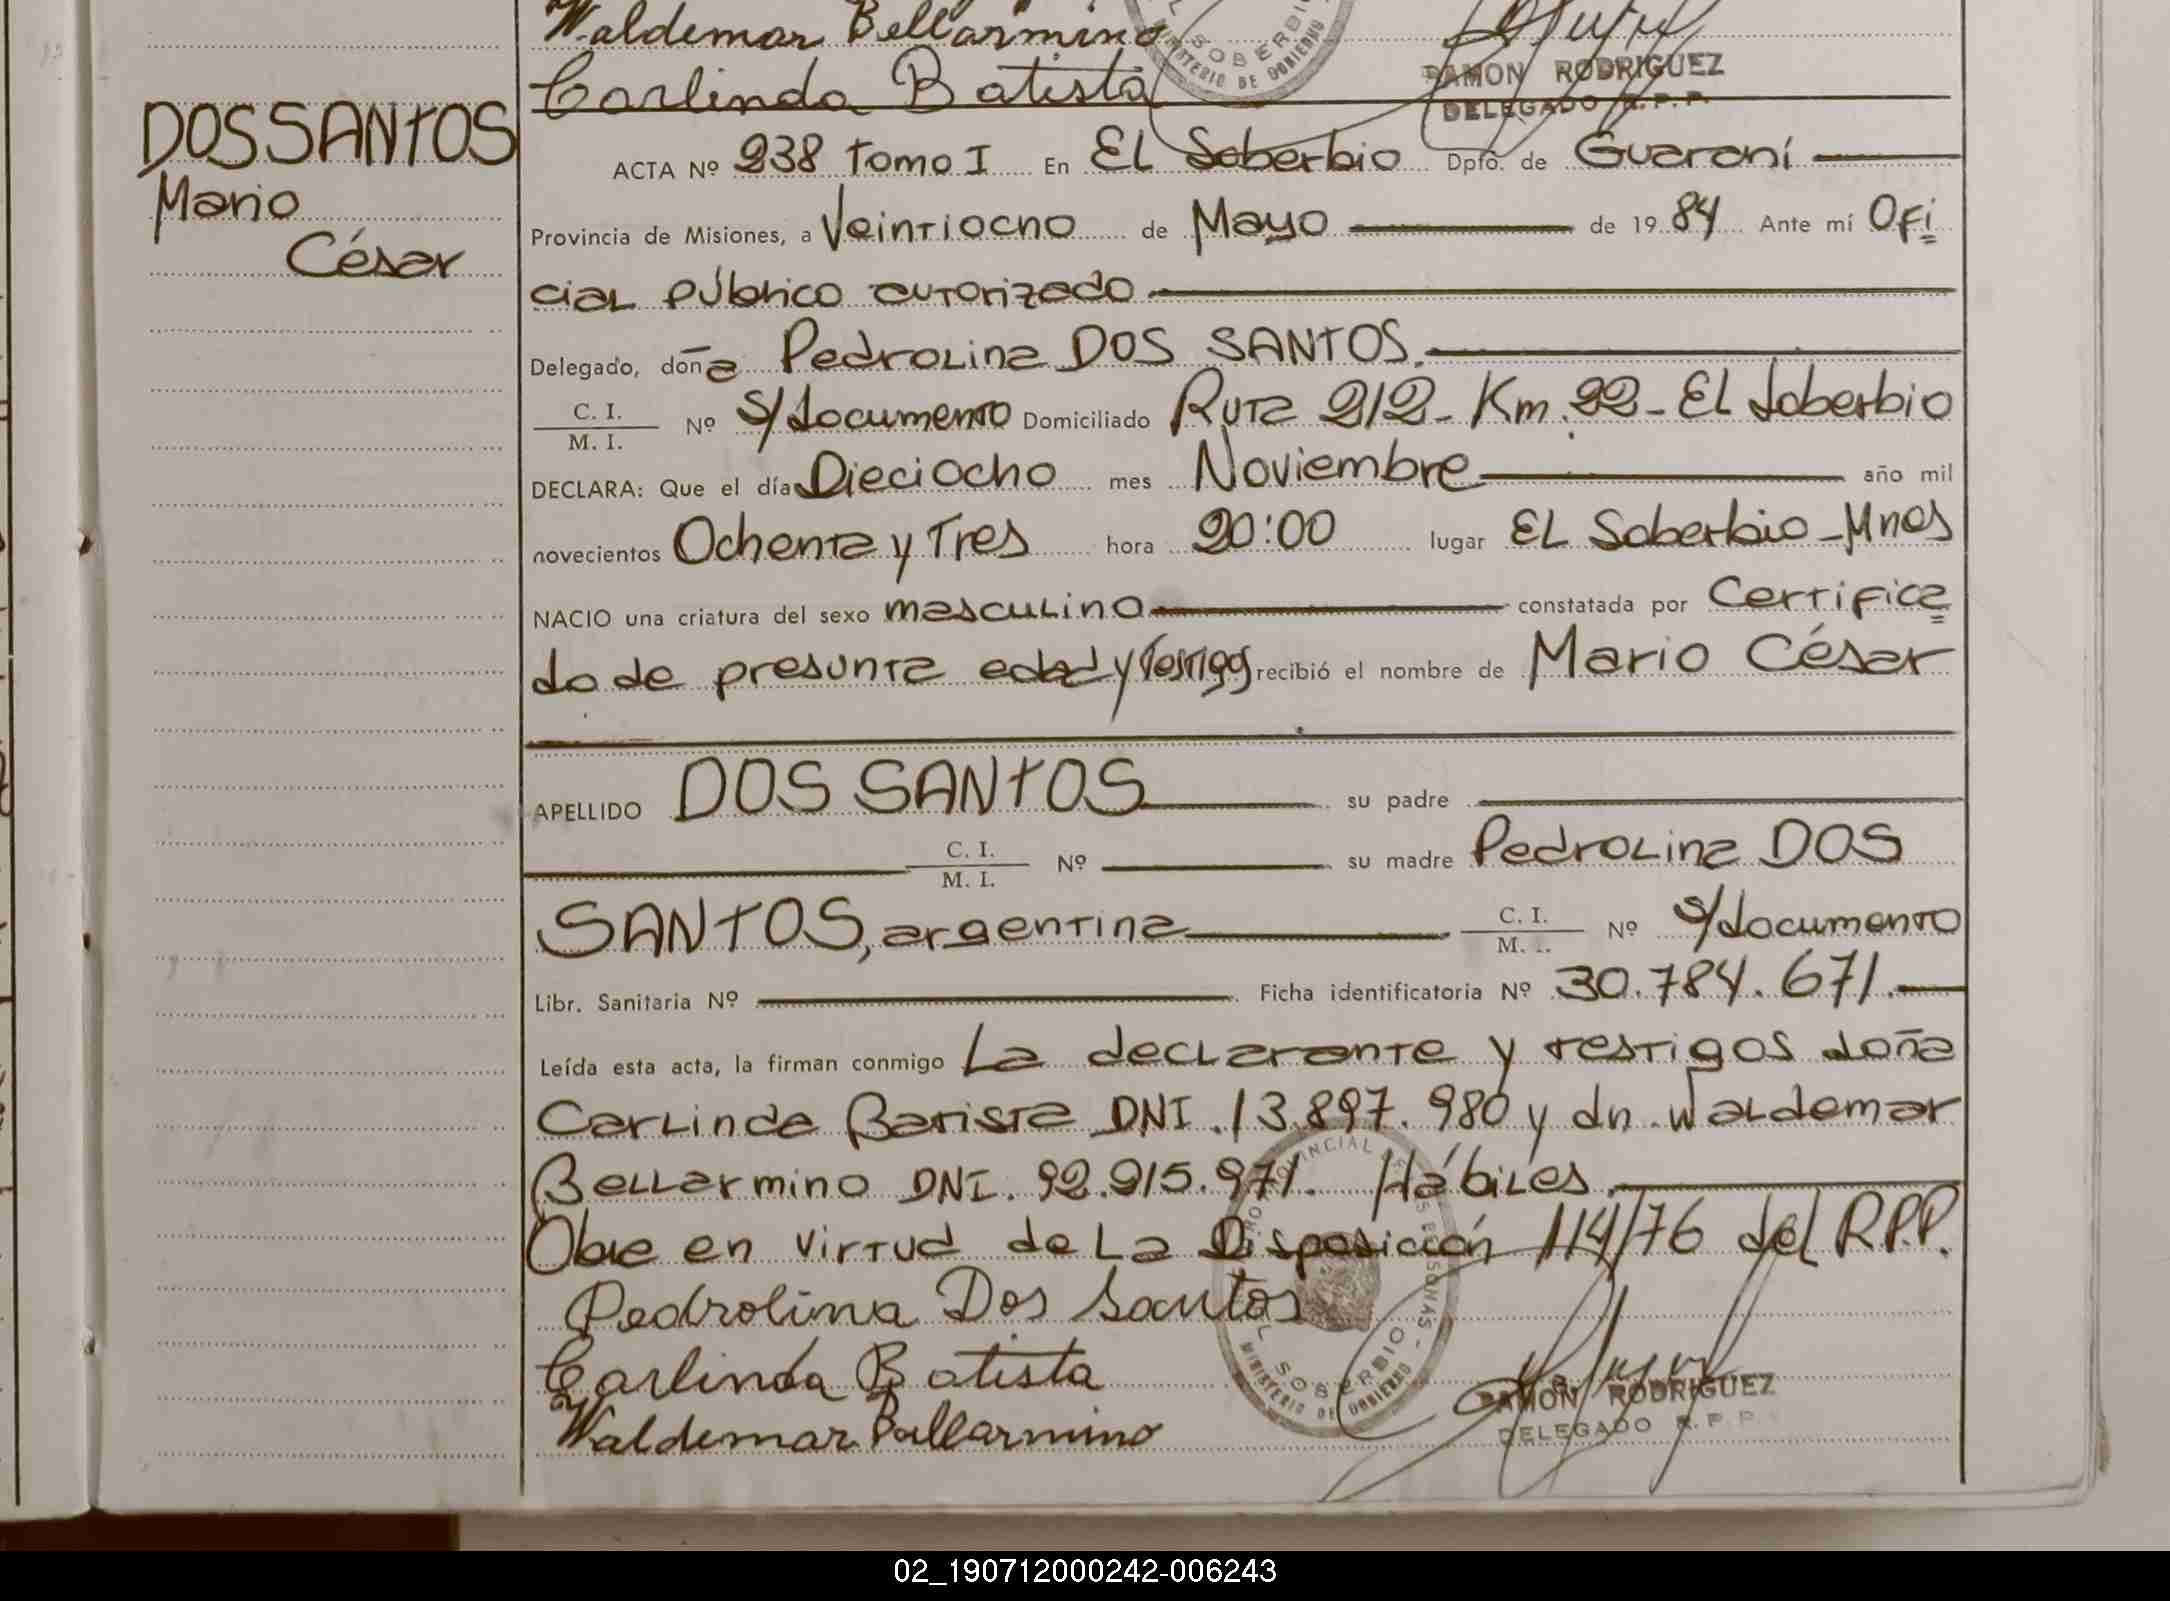 Waldemar Bellarmino
SOBERBIO
MINISTERIO DE GOBIERNO
Carlinda Batista
RAMON RODRIGUEZ
DELEGADO R.P.P.
DOS SANTOS
Mario
César
ACTA Nº 238 Tomo I En El Soberbio Dpto. de Guaraní
Provincia de Misiones, a Veintiocho de Mayo de 1984 Ante mí Ofi
cial Público autorizado
Delegado, doña Pedrolina DOS SANTOS.
C. I.
M. I. Nº s/documento Domiciliado Ruta 212 - Km. 22 - El Soberbio
DECLARA: Que el día Dieciocho mes Noviembre año mil
novecientos Ochenta y Tres hora 20:00 lugar El Soberbio - Mnes
NACIO una criatura del sexo masculino constatada por Certifica
do de presunta edad y testigos recibió el nombre de Mario César
APELLIDO DOS SANTOS su padre
C. I.
M. I. Nº su madre Pedrolina DOS
SANTOS, argentina C. I. Nº s/documento
M. I.
Libr. Sanitaria Nº Ficha identificatoria Nº 30.784.671.
Leída esta acta, la firman conmigo La declarante y testigos doña
Carlinda Batista DNI. 13.897.980 y dn. Waldemar
Bellarmino DNI. 92.915.971. Hábiles.
Obre en virtud de la Disposición 114/76 del R.P.P.
Pedrolina Dos Santos
Carlinda Batista
Waldemar Bellarmino
PROVINCIAL DE LAS PERSONAS
SOBERBIO
MINISTERIO DE GOBIERNO
RAMON RODRIGUEZ
DELEGADO R.P.P.
02_190712000242-006243